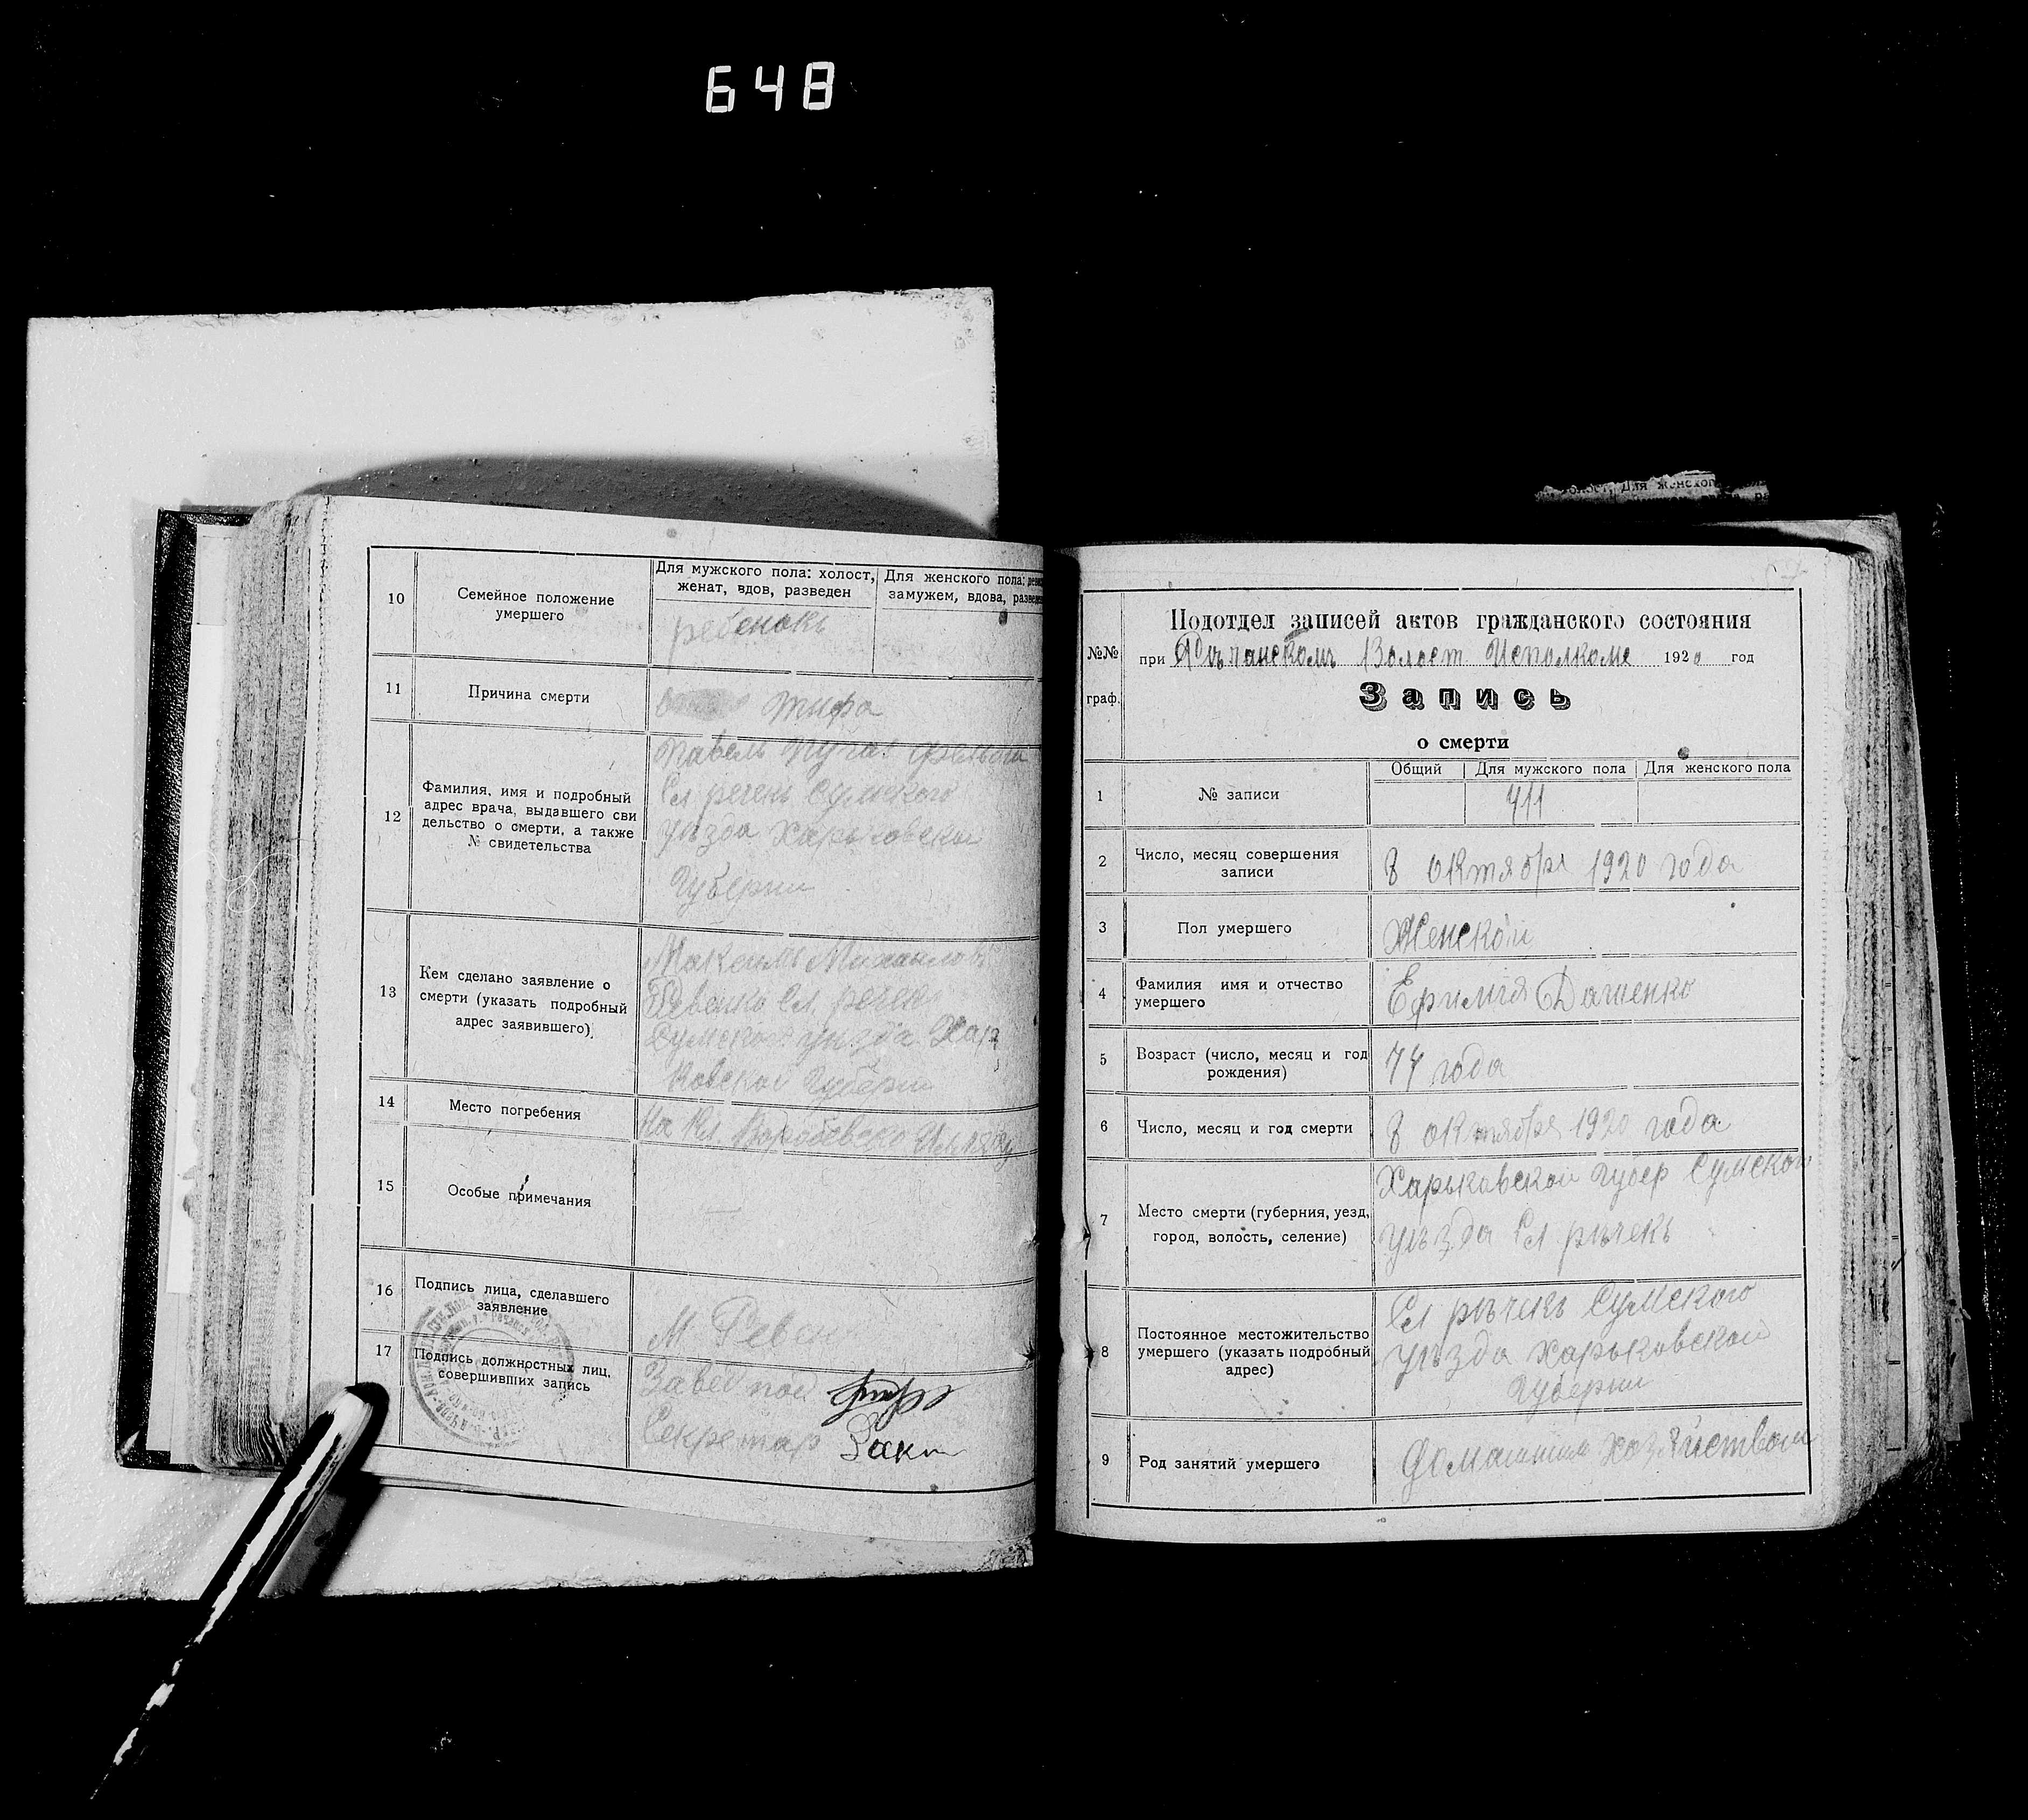 648
10
Семейное положение
умершего
Для мужского пола: холост,
женат, вдов, разведен
Для женского пола:
замужем, вдова,
ребенокъ
11
Причина смерти
тифа
12
Фамилия, имя и подробный
адрес врача, выдавшего сви
дельство о смерти, а также
№ свидетельства
Павелъ
Сл речекъ Сумского
уѣзда Харьковской
Губерни
13
Кем сделано заявление о
смерти (указать подробный
адрес заявившего)
Максимъ Михаилов
Ревенко Сл. речек
Сумского уѣзда Харь
ковской Губерни
14
Место погребения
на Кл.
15
Особые примечания
16
Подпись лица, сделавшего
заявление
М Ревен
17
Подпись должностных лиц,
совершивших запись
Завед
Секретар
№№
граф.
Подотдел записей актов гражданского состояния
при Рѣчанскомъ Волост Исполкоме 1920 год
Запись
о смерти
1
№ записи
Общий
Для мужского пола
Для женского пола
711
2
Число, месяц совершения
записи
8 октября 1920 года
3
Пол умершего
Женской
4
Фамилия имя и отчество
умершего
Ефимія Дашенко
5
Возраст (число, месяц и год
рождения)
74 года
6
Число, месяц и год смерти
8 октября 1920 года
7
Место смерти (губерния, уезд,
город, волость, селение)
Харьковской Губер Сумского
уѣзда Сл рѣчекъ
8
Постоянное местожительство
умершего (указать подробный
адрес)
Сл рѣчекъ Сумского
уѣзда Харьковской
Губерни
9
Род занятий умершего
Домашним хозяйством